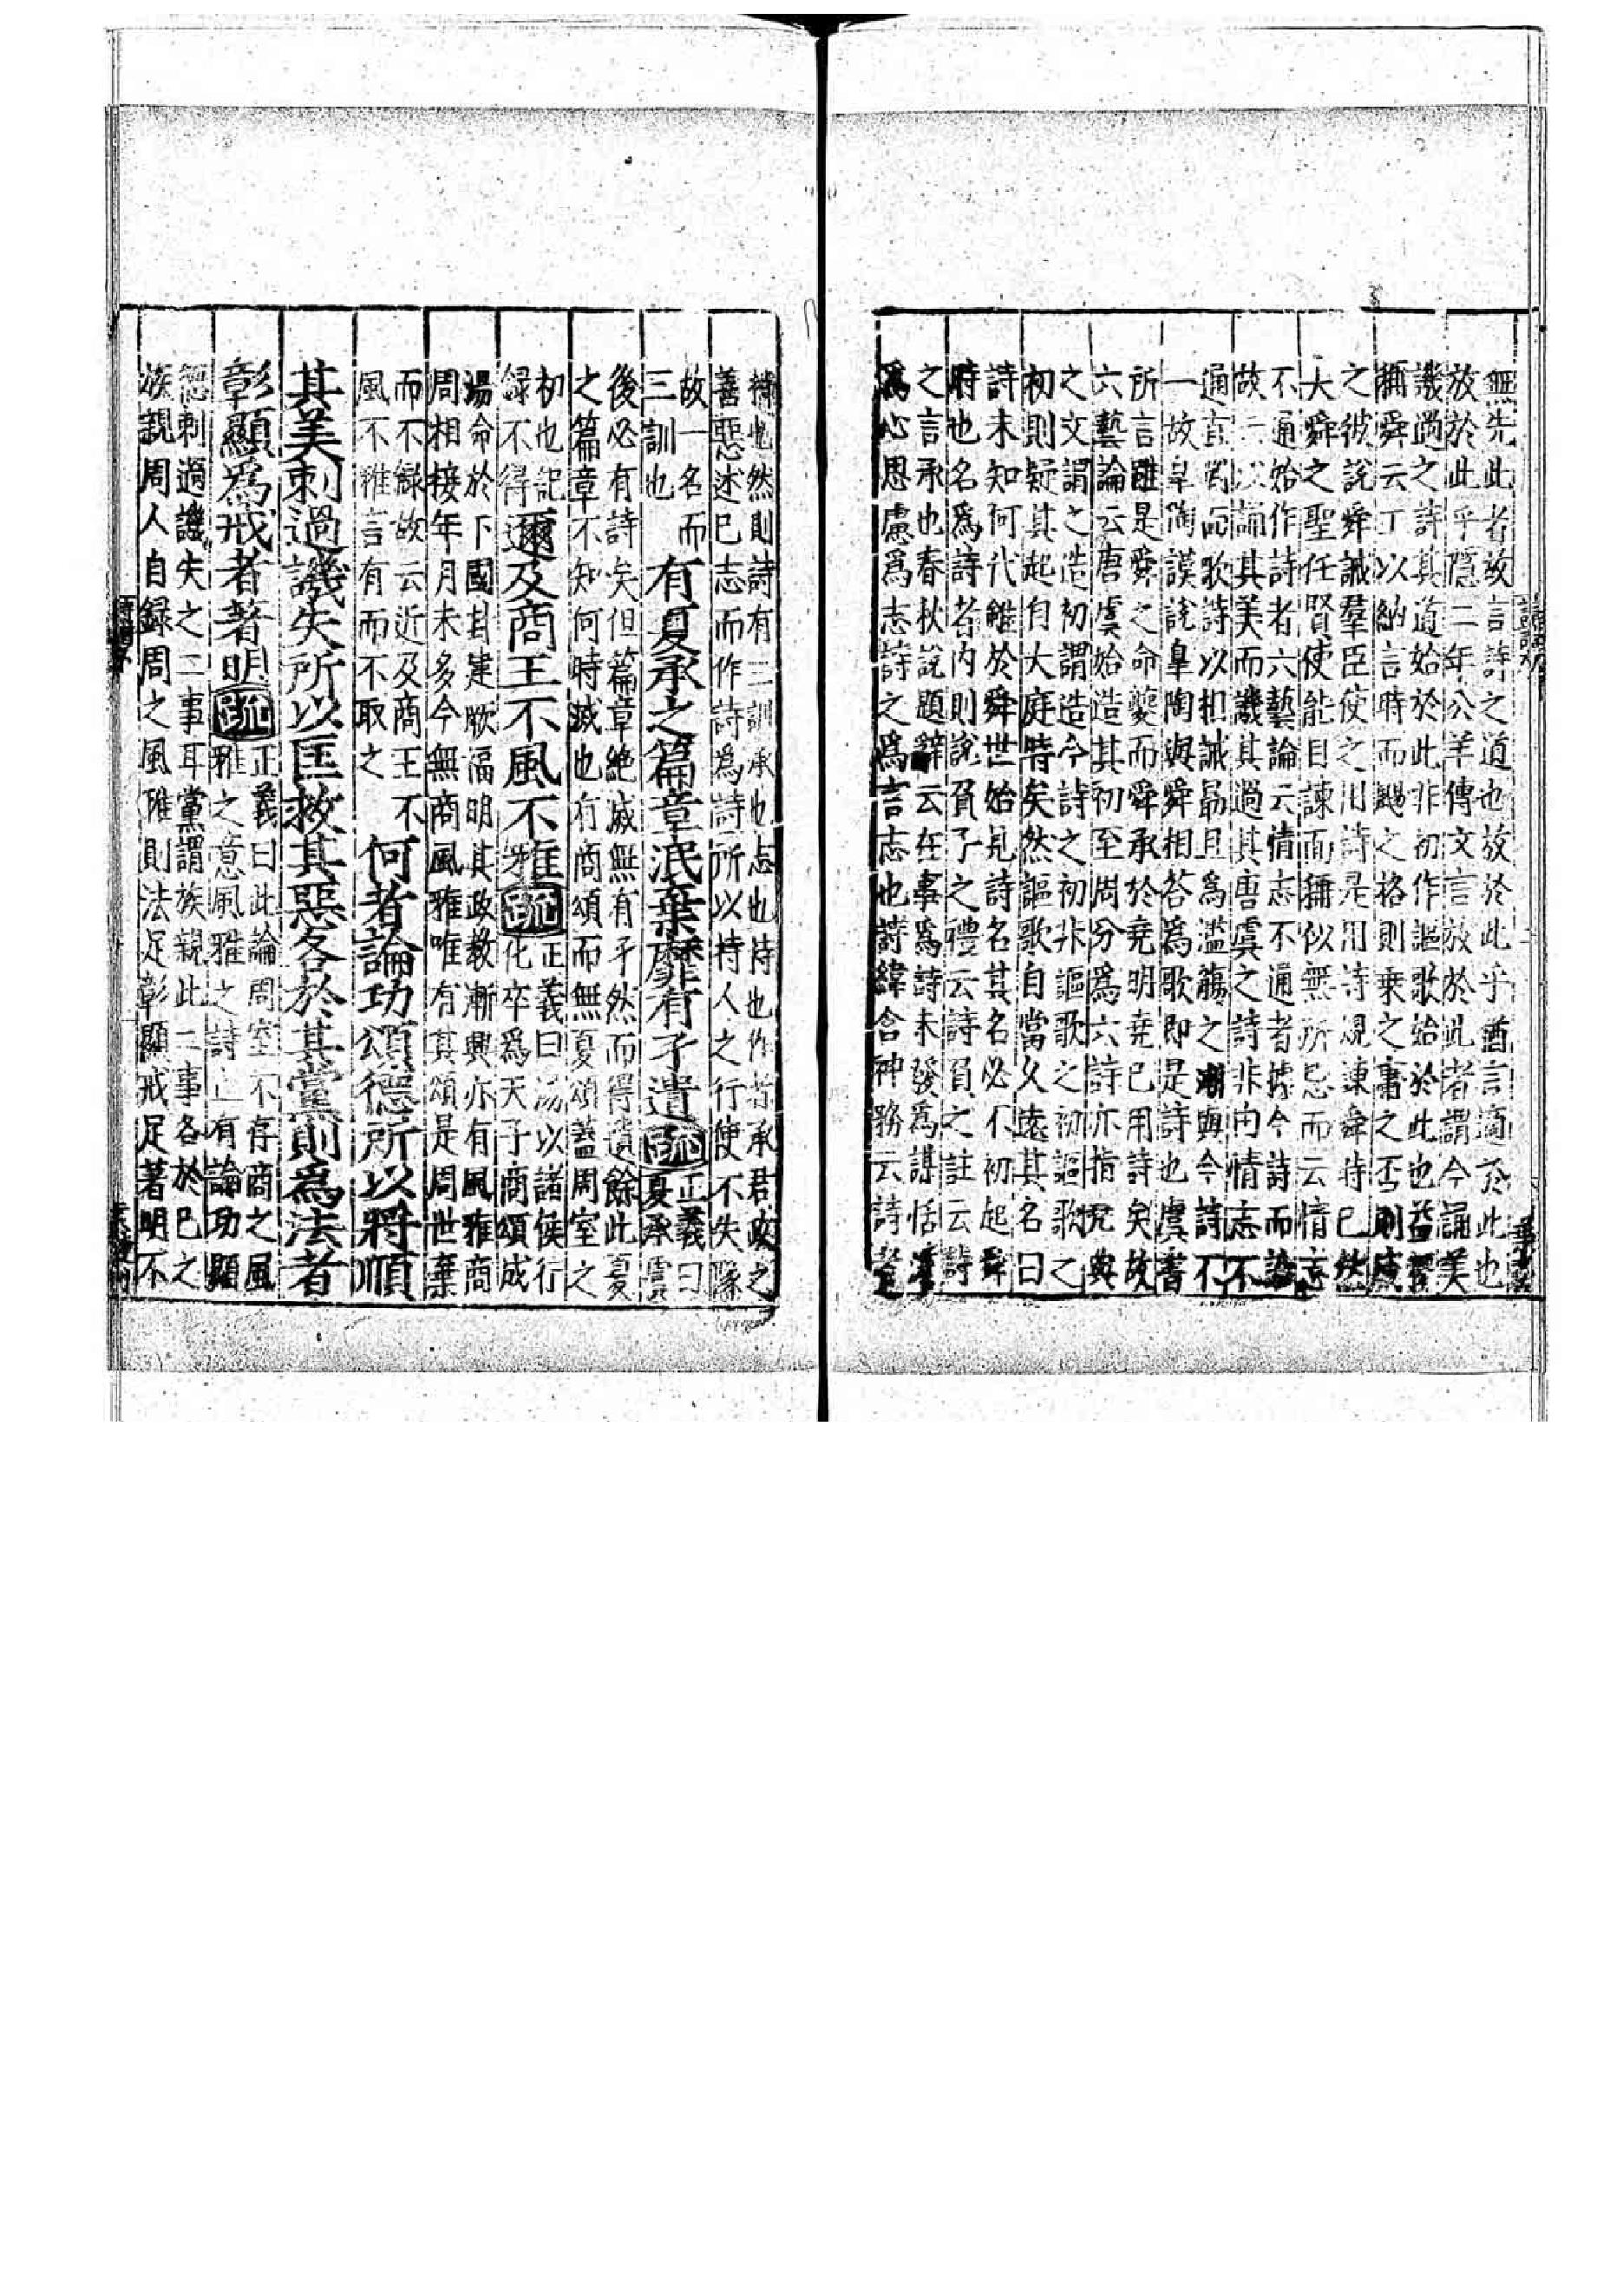 無先此者故言詩之道也放於此乎猶言適於此也
放於此乎隱二年公羊傳文言放於此者謂今誦美
譏過之詩其道始於此非初作謳歌始於此也益稷
稱舜云工以納言時而颺之格則乘之庸之否則威
之彼說舜誡羣臣使之用詩是用詩規諫舜時已然
大舜之聖任賢使能目諫面稱似無所忌而云情志
不通始作詩者六藝論云情志不通者據今詩而論
故云以誦其美而譏其過其唐虞之詩非由情志不
通直對面歌詩以相誡勗且爲濫觴之漸與今詩不
一故皐陶謨說皐陶與舜相荅爲歌即是詩也虞書
所言雖是舜之命夔而舜承於堯明堯已用詩矣故
六藝論云唐虞始造其初至周分爲六詩亦指堯典
之文謂之造初謂造今詩之初非謳歌之初謳歌之
初則疑其起自大庭時矣然謳歌自當久遠其名曰
詩未知何代雖於舜世始見詩名其名必不初起舜
時也名爲詩者內則說負子之禮云詩負之註云詩
之言承也春秋說題辭云在事爲詩未發爲謀恬澹
爲心思慮爲志詩之爲言志也詩緯含神務云詩者
持也然則詩有三訓承也志也持也作者承君政之
善惡述己志而作詩爲詩所以持人之行使不失隊
故一名而
三訓也
有夏承之篇章泯棄靡有孑遺疏
正義曰
夏承虞
後必有詩矣但篇章絶滅無有孑然而得遺餘此夏
之篇章不知何時滅也有商頌而無夏頌蓋周室之
初也記
録不得
邇及商王不風不雅疏
正義曰湯以諸侯行
化卒爲天子商頌成
湯命於下國封建厥福明其政教漸興亦有風雅商
周相接年月未多今無商風雅唯有其頌是周世棄
而不録故云近及商王不
風不雅言有而不取之
何者論功頌德所以將順
其美刺過譏失所以匡救其惡各於其黨則爲法者
彰顯爲戒者著明疏
正義曰此論周室不存商之風
雅之意風雅之詩止有論功頌
德刺過譏失之二事耳黨謂族親此二事各於己之
族親周人自録周之風雅則法足彰顯戒足著明不